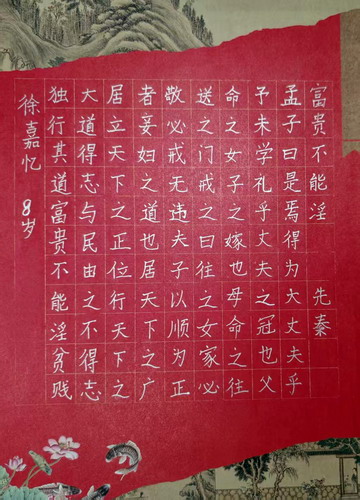 富贵不能淫 先秦
孟子曰是焉得为大丈夫乎
予未学礼乎丈夫之冠也父
命之女子之嫁也母命之往
送之门戒之曰往之女家必
敬必戒无违夫子以顺为正
者妾妇之道也居天下之广
居立天下之正位行天下之
大道得志与民由之不得志
独行其道富贵不能淫贫贱
徐嘉忆 8岁